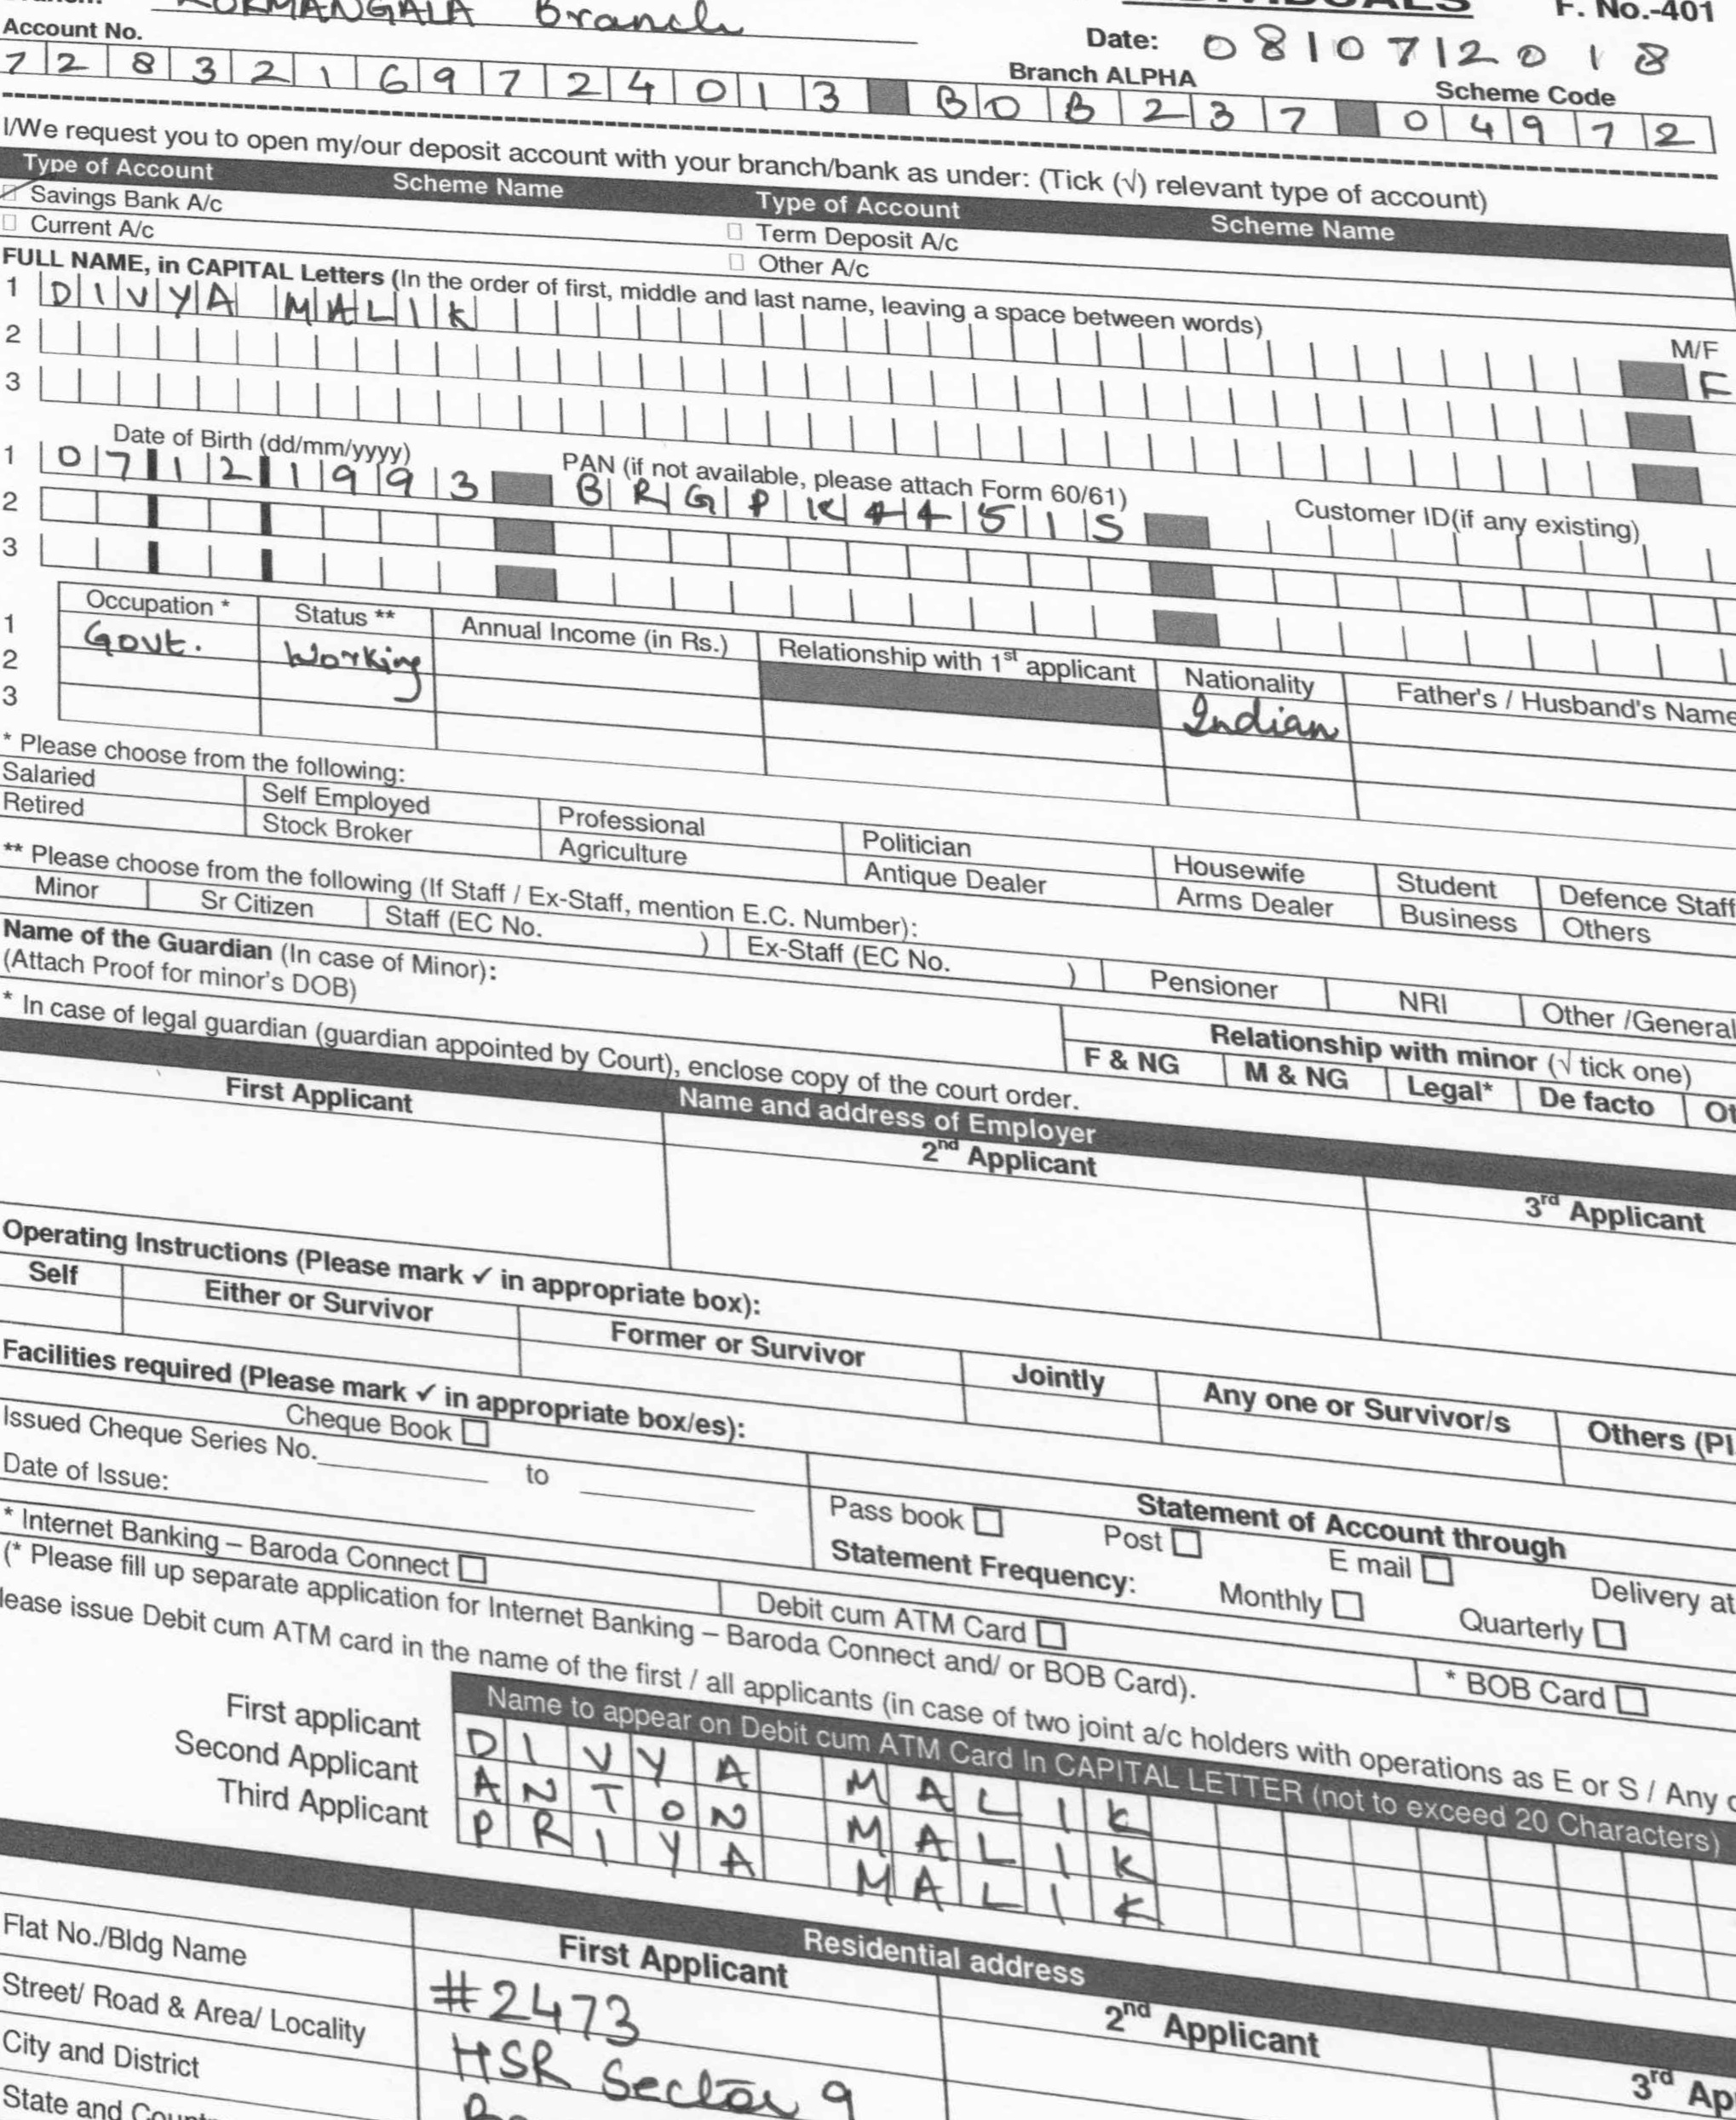 KORMANGALA Branch
F. No.-401
Account No.
Date: 08/07/2018
Branch ALPHA
Scheme Code
72832169724013 BOB237 04972
I/We request you to open my/our deposit account with your branch/bank as under: (Tick (√) relevant type of account)
Type of Account Scheme Name Type of Account Scheme Name
Savings Bank A/c Term Deposit A/c
Current A/c Other A/c
FULL NAME, in CAPITAL Letters (In the order of first, middle and last name, leaving a space between words)
M/F
1 DIVYA MALIK F
2
3
Date of Birth (dd/mm/yyyy) PAN (if not available, please attach Form 60/61) Customer ID(if any existing)
1 07 12 1993 BRGPK4451S
2
3
Occupation * Status ** Annual Income (in Rs.) Relationship with 1st applicant Nationality Father's / Husband's Name
1 Govt. Working Indian
2
3
* Please choose from the following:
Salaried Self Employed Professional Politician Housewife Student Defence Staff
Retired Stock Broker Agriculture Antique Dealer Arms Dealer Business Others
** Please choose from the following (If Staff / Ex-Staff, mention E.C. Number):
Minor Sr Citizen Staff (EC No. ) Ex-Staff (EC No. ) Pensioner NRI Other /General
Name of the Guardian (In case of Minor):
(Attach Proof for minor's DOB)
Relationship with minor (√ tick one)
F & NG M & NG Legal* De facto
* In case of legal guardian (guardian appointed by Court), enclose copy of the court order.
Name and address of Employer
First Applicant 2nd Applicant 3rd Applicant
Operating Instructions (Please mark ✓ in appropriate box):
Self Either or Survivor Former or Survivor Jointly Any one or Survivor/s Others (Pl
Facilities required (Please mark ✓ in appropriate box/es):
Cheque Book
Issued Cheque Series No. to
Date of Issue:
Statement of Account through
Pass book Post E mail Delivery at
Statement Frequency: Monthly Quarterly
* Internet Banking – Baroda Connect Debit cum ATM Card * BOB Card
(* Please fill up separate application for Internet Banking – Baroda Connect and/ or BOB Card).
lease issue Debit cum ATM card in the name of the first / all applicants (in case of two joint a/c holders with operations as E or S / Any
Name to appear on Debit cum ATM Card In CAPITAL LETTER (not to exceed 20 Characters)
First applicant DIVYA MALIK
Second Applicant ANTON MALIK
Third Applicant PRIYA MALIK
Residential address
First Applicant 2nd Applicant 3rd Ap
Flat No./Bldg Name #2473
Street/ Road & Area/ Locality HSR Sector 9
City and District
State and